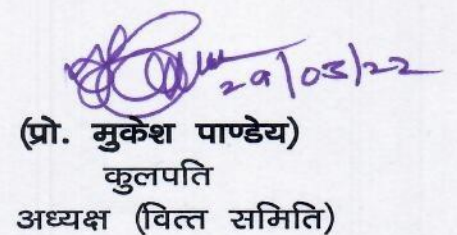 29/03/22
(प्रो. मुकेश पाण्डेय)
कुलपति
अध्यक्ष (वित्त समिति)